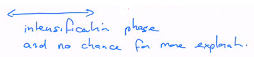 intensification phase
and no chance for more explorat.